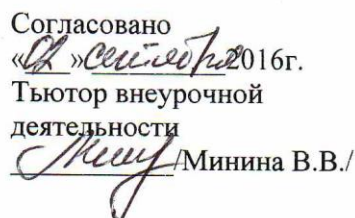 Согласовано
«02»сентября 2016г.
Тьютор внеурочной
деятельности
/Минина В.В./